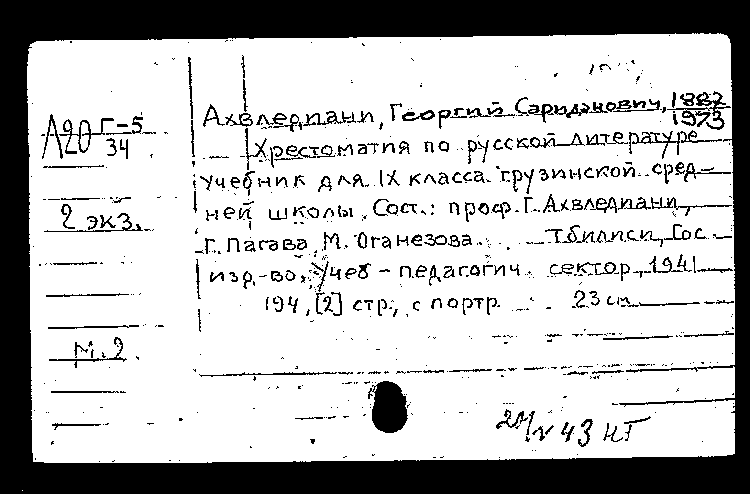 Ахвледиани, Георгий Сариданович, 1887
1973
А20 Г-5
34
Хрестоматия по русской литературе
Учебник для IX класса грузинской сред-
2 экз.
ней школы. Сост.: проф. Г. Ахвледиани,
Г. Пагава, М. Оганезова. Тбилиси, Гос.
изд.-во, Учеб-педагогич. сектор, 1941
194, [2] стр., с портр. 23 см
М.2.
43 НТ